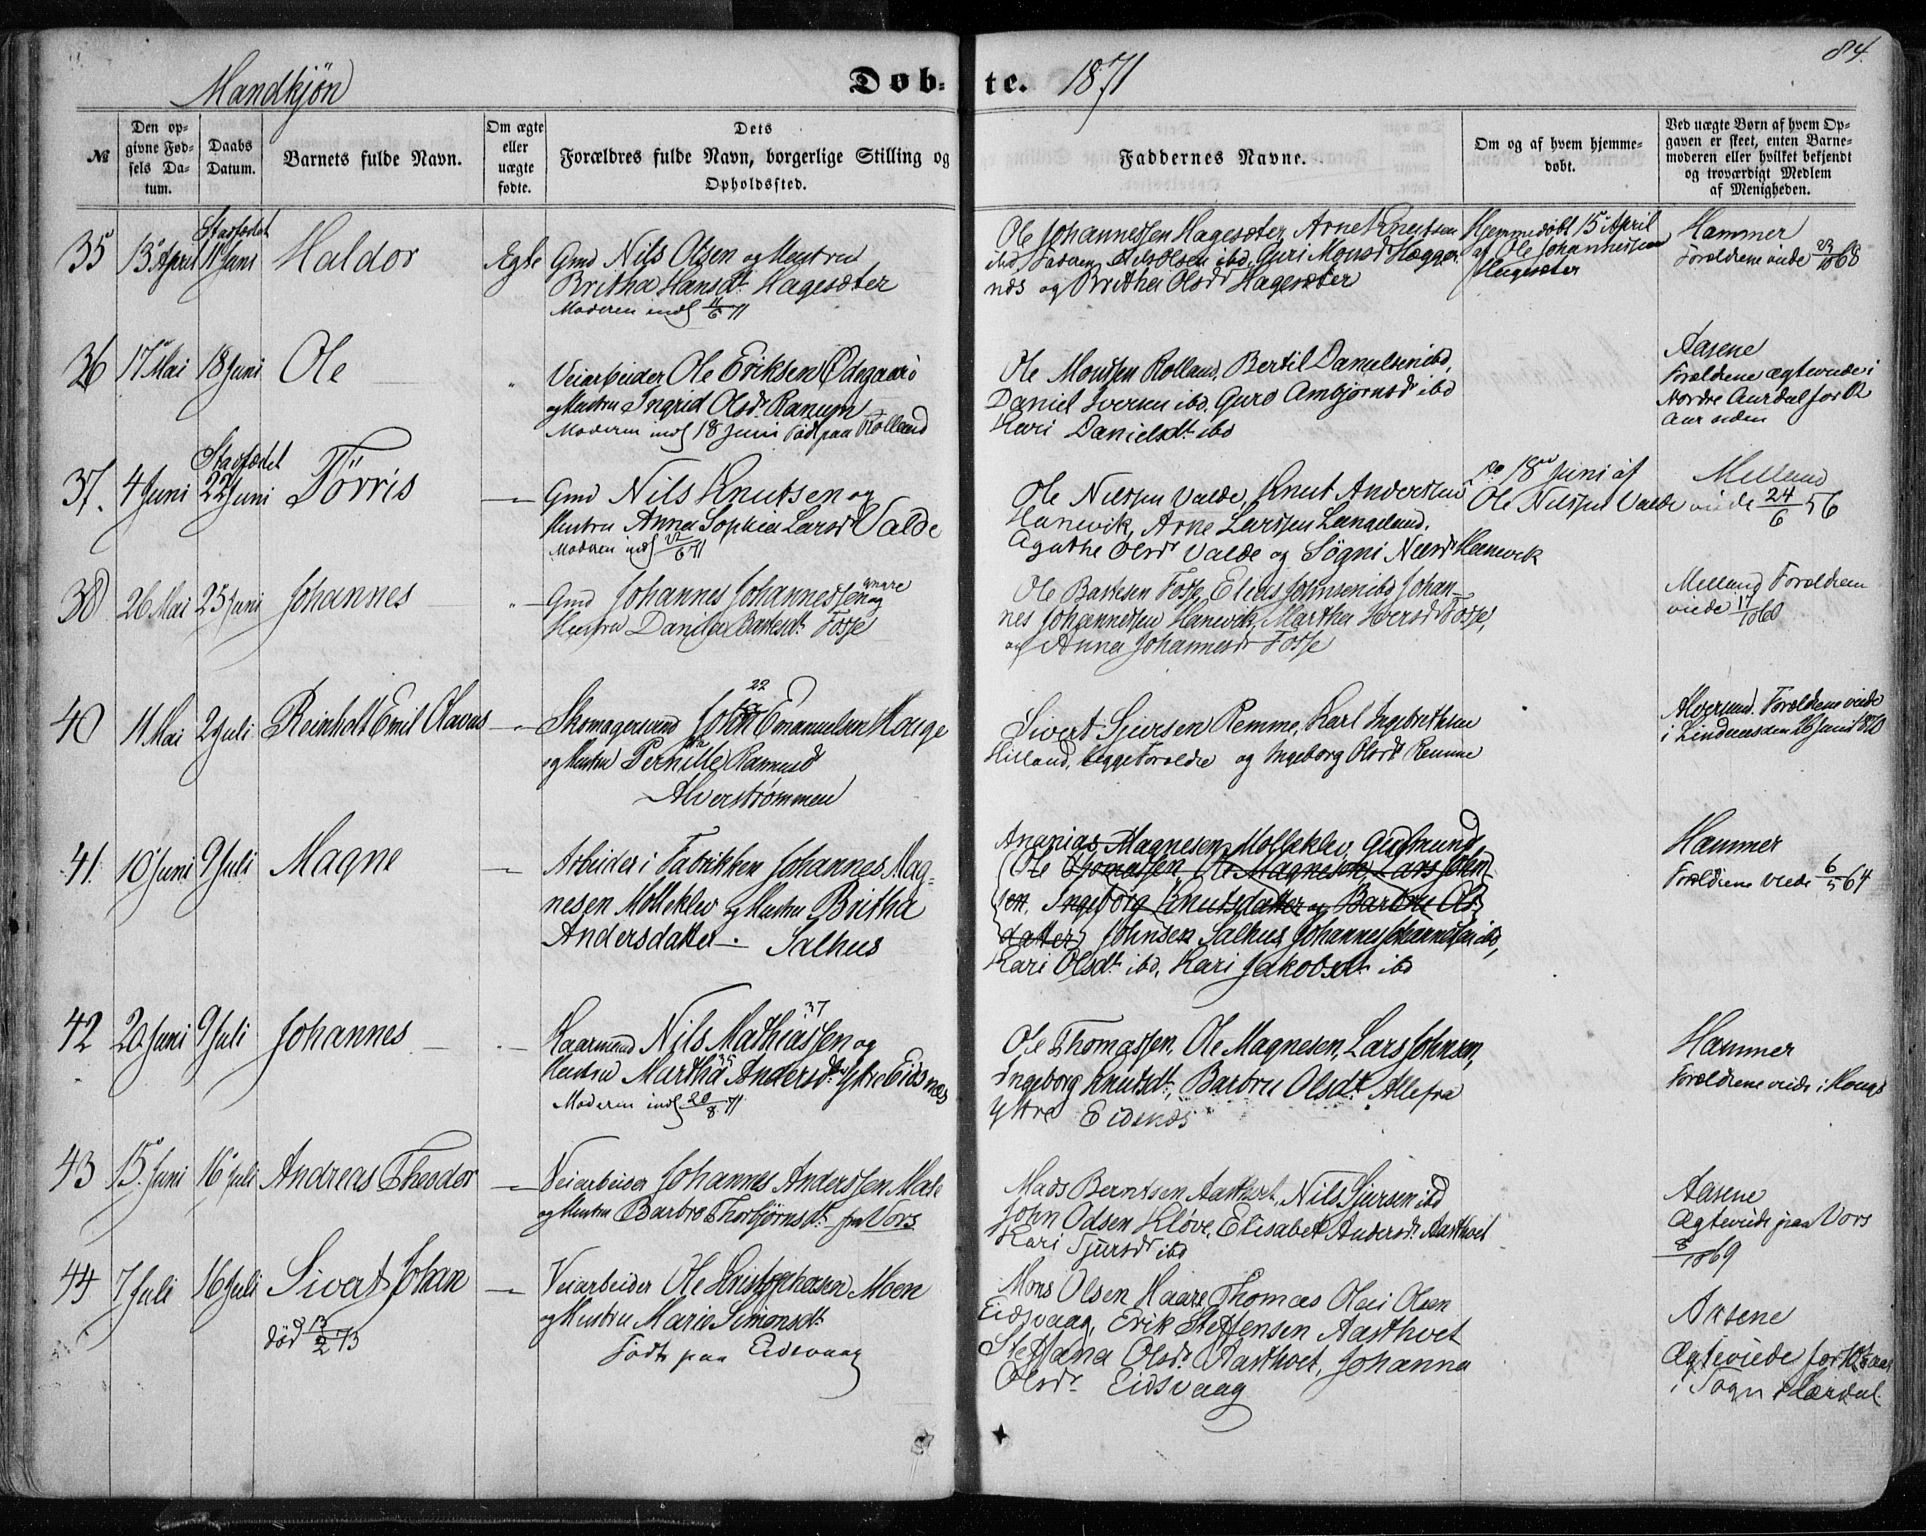 84.
Mandkjön
Døb-
te.
1871
№
Den op-
givne Fød-
sels Da-
tum.
Daabs
Datum.
Barnets fulde Navn.
Om ægte
eller
uægte
fødte.
Dets
Forældres fulde Navn, borgerlige Stilling og
Opholdssted.
Faddernes Navne.
Om og af hvem hjemme-
døbt.
Ved uægte Børn af hvem Op-
gaven er skeet, enten Barne-
moderen eller hvilket bekjendt
og troværdigt Medlem
af Menigheden.
35
13 April
Stadfædet
11 Juni
Haldor
Egte
Gmd Nils Olsen og Hustru
Britha Hansdt Hagesæter
Moderen indl 11/6 71
Ole Johannessen Hagesæter, Arne Knutsen
ibd, Faderen Nils Olsen ibd, Guri Monsdr Hægger
næs og Britha Olsdr Hagesæter
Hjemmedøbt 15 April
af Ole Johannessen
Hagesæter
Hammer
Forældrene viede 23/10 68
36
17 Mai
18 Juni
Ole
"
Veiarbeider Ole Eriksen Ødegaard
og Hustru Ingrid Olsdr Ranum
Moderen indl 18 Juni Født paa Rolland
Ole Monsen Rolland, Bertil Danielsen ibd,
Daniel Iversen ibd, Guro Ambjørnsdr ibd
Kari Danielsdt ibd
Aasene
Forældrene ægteviede i
Nordre Aurdal for 12
Aar siden
37.
4 Juni
Stadfædet
22 Juni
Törris
—
Gmd Nils Knutsen og
Hustru Anna Sophia Larsdr Valde
Moderen indl 22/6 71
Ole Nilssen Valde, Knut Anderssen
Hanevik, Arne Larssen Langeland,
Agathe Olsdr Valde og Søgni Nilsdr Hanevik
do 18 Juni af
Ole Nilssen Valde
Melland
viede 24/6 56
38
26 Mai
25 Juni
Johannes
"
Gmd Johannes Johannessen yngre
og
Hustru Danila Bastesdt Fosse
Ole Bastesen Fosse, Elias Johnsen ibd, Johan-
nes Johannessen Hanevik, Martha Iversdr Fosse,
og Anna Johannesdr Fosse
Melland Forældrene
viede 17/10 60
40
11 Mai
2 Juli
Reinholt Emil Olavus
—
22
Skomagersvend John Emanuelsen Kouge
og Hustru Pernille Rasmusd
Alverstrømmen
Sivert Sjursen Remme, Karl Ingebrethsen
Hilland, begge Forældre og Ingeborg Olsdt Remme
Alversund. Forældrene viede
i Lindaas den 26 Juni 1870
41.
10 Juni
9 Juli
Magne
—
Arbeider i Fabrikken Johannes Mag-
nesen Mølleklev og Hustru Britha
Andersdatter. Salhus
Ananias Magnesen Mølleklev, Gudmund
(Ole Thomassen, Ole Magnesen, Lars John-
sen, Ingeborg Knutsdatter og Barbru Ols-
datter) Johnsen Salhus, Johannes Johannessen ibd,
Kari Olsdt ibd, Kari Jakobsdt ibd
Hammer
Forældrene viede 6/5 64
42
20 Juni
9 Juli
Johannes
—
37
Haarmand Nils Mathiassen og
35
Hustru Martha Andersdt Ytre Eidsnæs
Moderen indl 20/8 71
Ole Thomassen, Ole Magnesen, Lars Johnsen,
Ingeborg Knutsdt, Barbru Olsdt. Alle fra
Ytre Eidsnæs
Hammer
Forældrene viede i Haugs
43
15 Juni
16 Juli
Andreas Theodor
—
Veiarbeider Johannes Anderssen Male
og Hustru Barbro Thorbjørnsdt fra Vors
Mads Berntsen Aasthvet, Nils Sjursen ibd
John Odsen Kløve, Elisabet Andersdr Aasthvet
Kari Sjursdr ibd
Aasene
Ægteviede paa Vors
8/10 69
44
7 Juli
16 Juli
Sivert Johan
død 13/2 73
—
Veiarbeider Ole Kristophersen Moen
og Hustru Marie Simonsdt
Født paa Eidsvaag
Mons Olsen Haare, Thomas Olai Olsen
Eidsvaag, Erik Steffensen Aasthvet
Steffana Olsdr Aasthvet, Johanna
Olsdr Eidsvaag
Aasene
Ægteviede for 10 aar
i Sogn i Lærdal